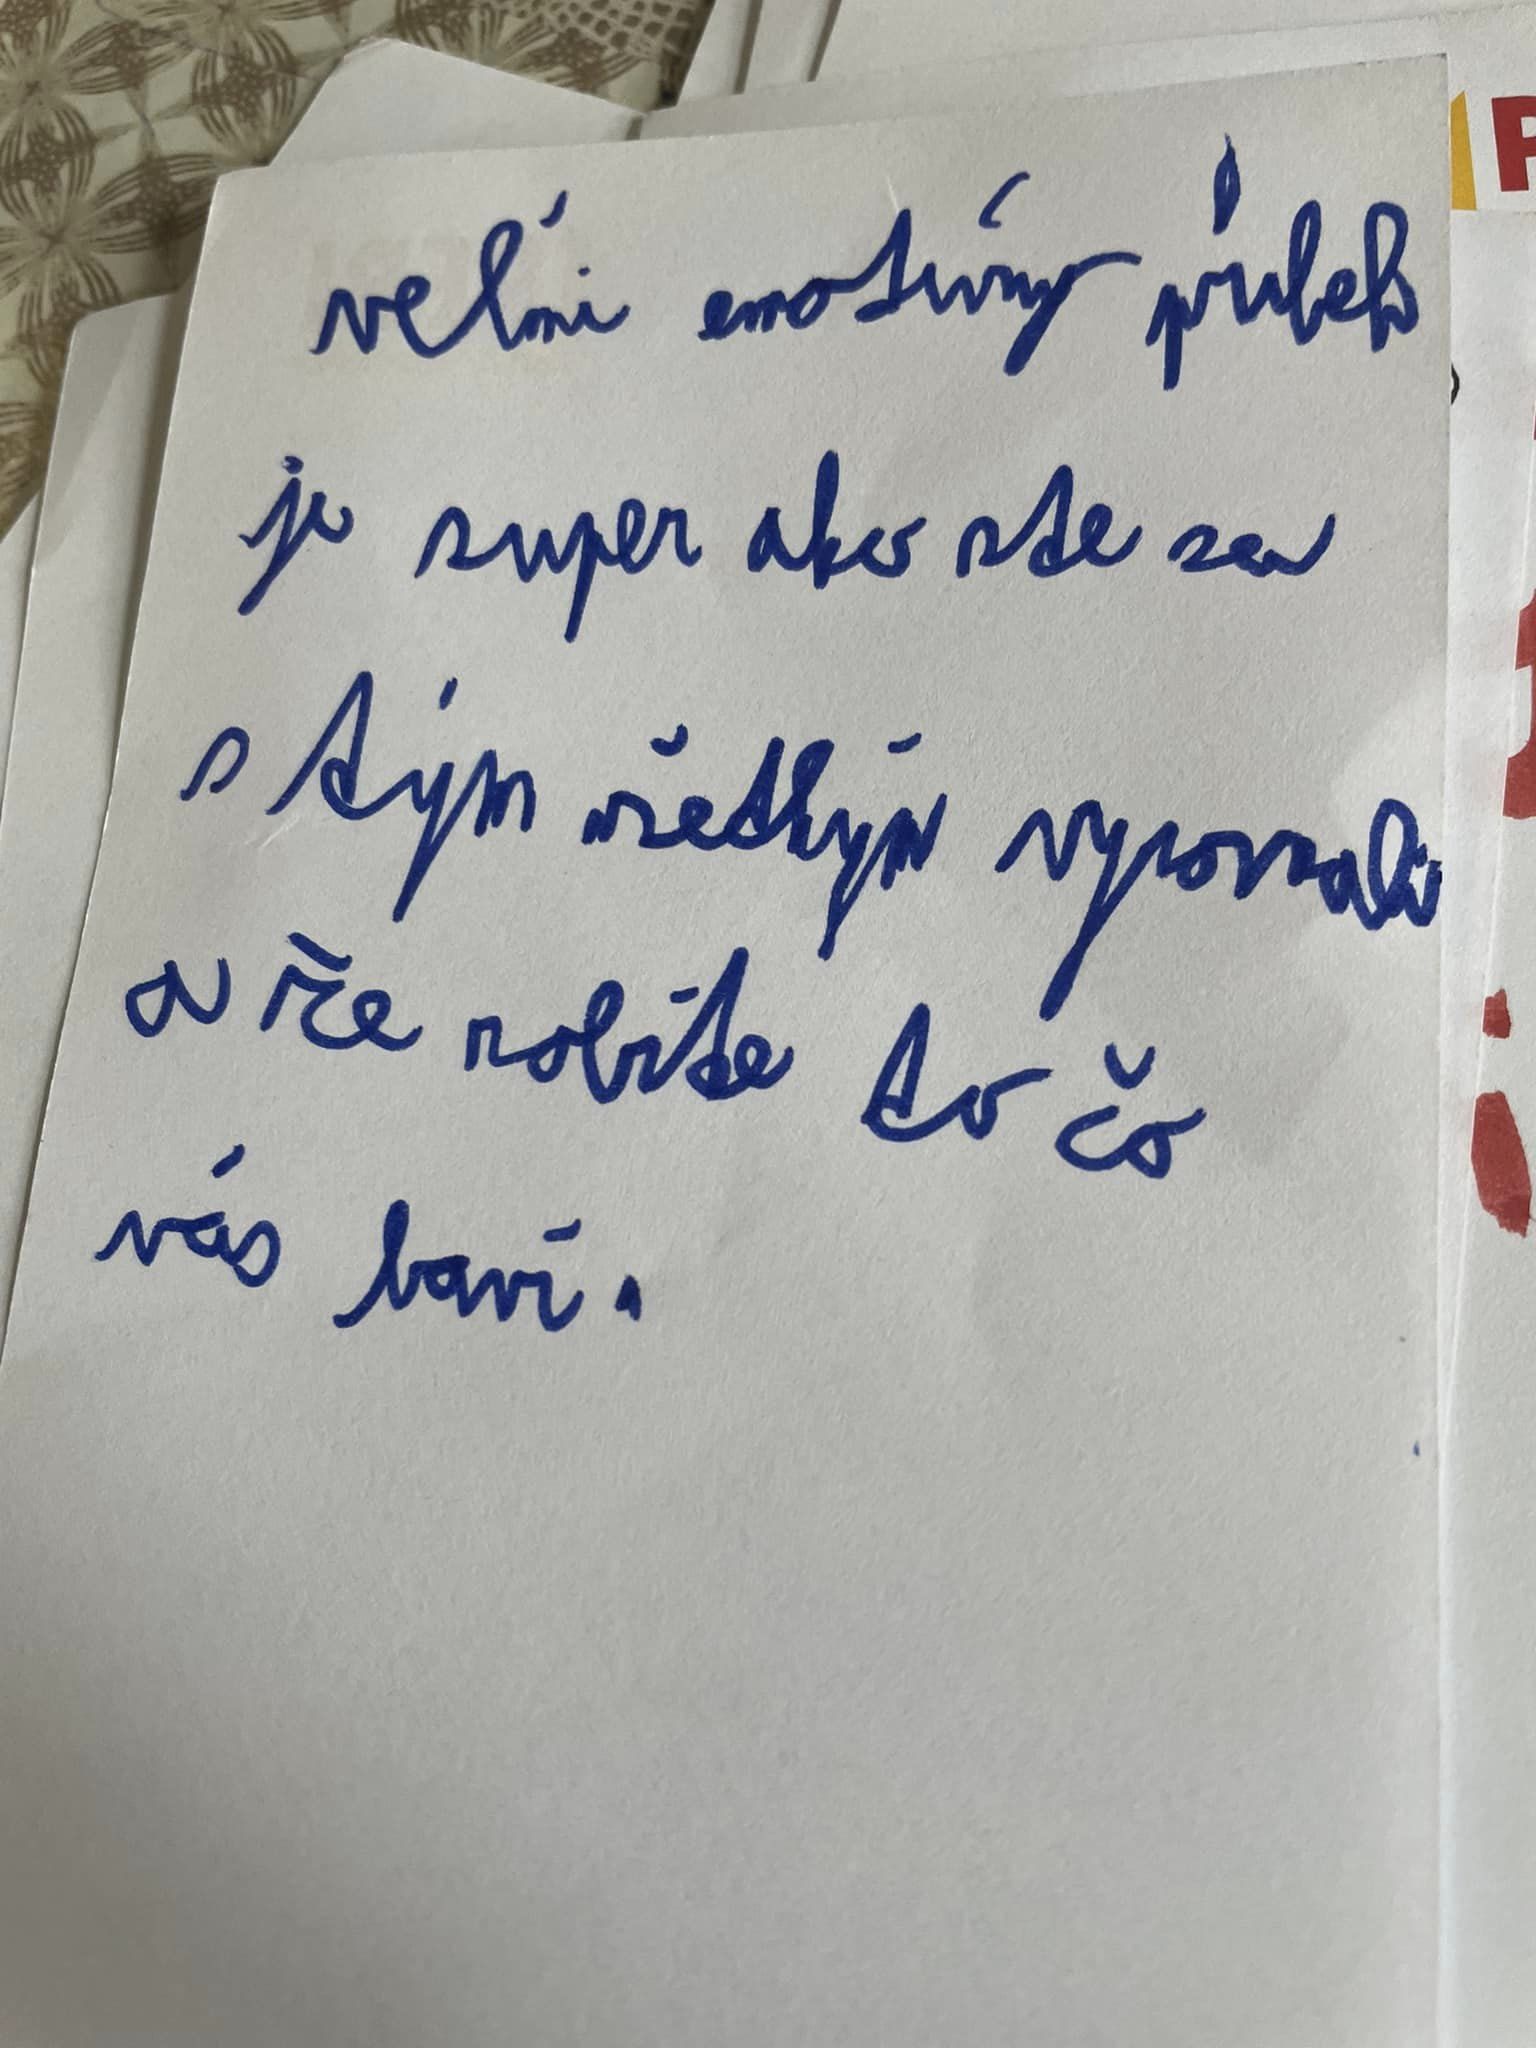 veľmi emotívny príbeh
P
je super ako ste sa
s tým všetkým vyrovnali
a že robíte to čo
vás baví.